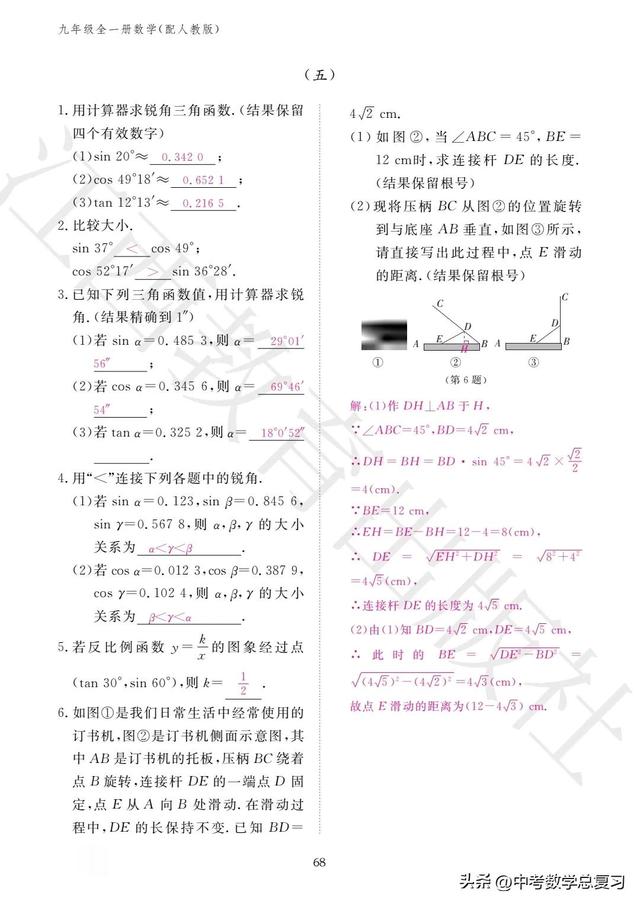 九年级全一册数学(配人教版)
(五)
1.用计算器求锐角三角函数.(结果保留
四个有效数字)
(1)sin 20°≈ 0.342 0 ;
(2)cos 49°18′≈ 0.652 1 ;
(3)tan 12°13′≈ 0.216 5 .
2.比较大小.
sin 37° < cos 49°;
cos 52°17′ > sin 36°28′.
3.已知下列三角函数值,用计算器求锐
角.(结果精确到1″)
(1)若 sin α=0.485 3,则 α= 29°01′
56″ ;
(2)若 cos α=0.345 6,则 α= 69°46′
54″ ;
(3)若 tan α=0.325 2,则 α= 18°0′52″
.
4.用“<”连接下列各题中的锐角.
(1)若 sin α=0.123,sin β=0.845 6,
sin γ=0.567 8,则 α,β,γ 的大小
关系为 α<γ<β .
(2)若 cos α=0.012 3,cos β=0.387 9,
cos γ=0.102 4,则 α,β,γ 的大小
关系为 β<γ<α .
5.若反比例函数 y=k/x 的图象经过点
(tan 30°,sin 60°),则 k= 1/2 .
6.如图①是我们日常生活中经常使用的
订书机,图②是订书机侧面示意图,其
中 AB 是订书机的托板,压柄 BC 绕着
点 B 旋转,连接杆 DE 的一端点 D 固
定,点 E 从 A 向 B 处滑动.在滑动过
程中,DE 的长保持不变.已知 BD=
4√2 cm.
(1)如图②,当∠ABC=45°,BE=
12 cm时,求连接杆 DE 的长度.
(结果保留根号)
(2)现将压柄 BC 从图②的位置旋转
到与底座 AB 垂直,如图③所示,
请直接写出此过程中,点 E 滑动
的距离.(结果保留根号)
C
D
A E H B
C
D
A E B
① ② ③
(第6题)
解:(1)作 DH⊥AB 于 H,
∵∠ABC=45°,BD=4√2 cm,
∴DH=BH=BD·sin 45°=4√2×√2/2
=4(cm).
∵BE=12 cm,
∴EH=BE-BH=12-4=8(cm),
∴ DE = √(EH²+DH²) = √(8²+4²)
=4√5(cm),
∴连接杆 DE 的长度为 4√5 cm.
(2)由(1)知 BD=4√2 cm,DE=4√5 cm,
∴ 此 时 的 BE = √(DE²-BD²) =
√((4√5)²-(4√2)²)=4√3(cm),
故点 E 滑动的距离为(12-4√3) cm.
68
江西教育出版社
头条 @中考数学总复习